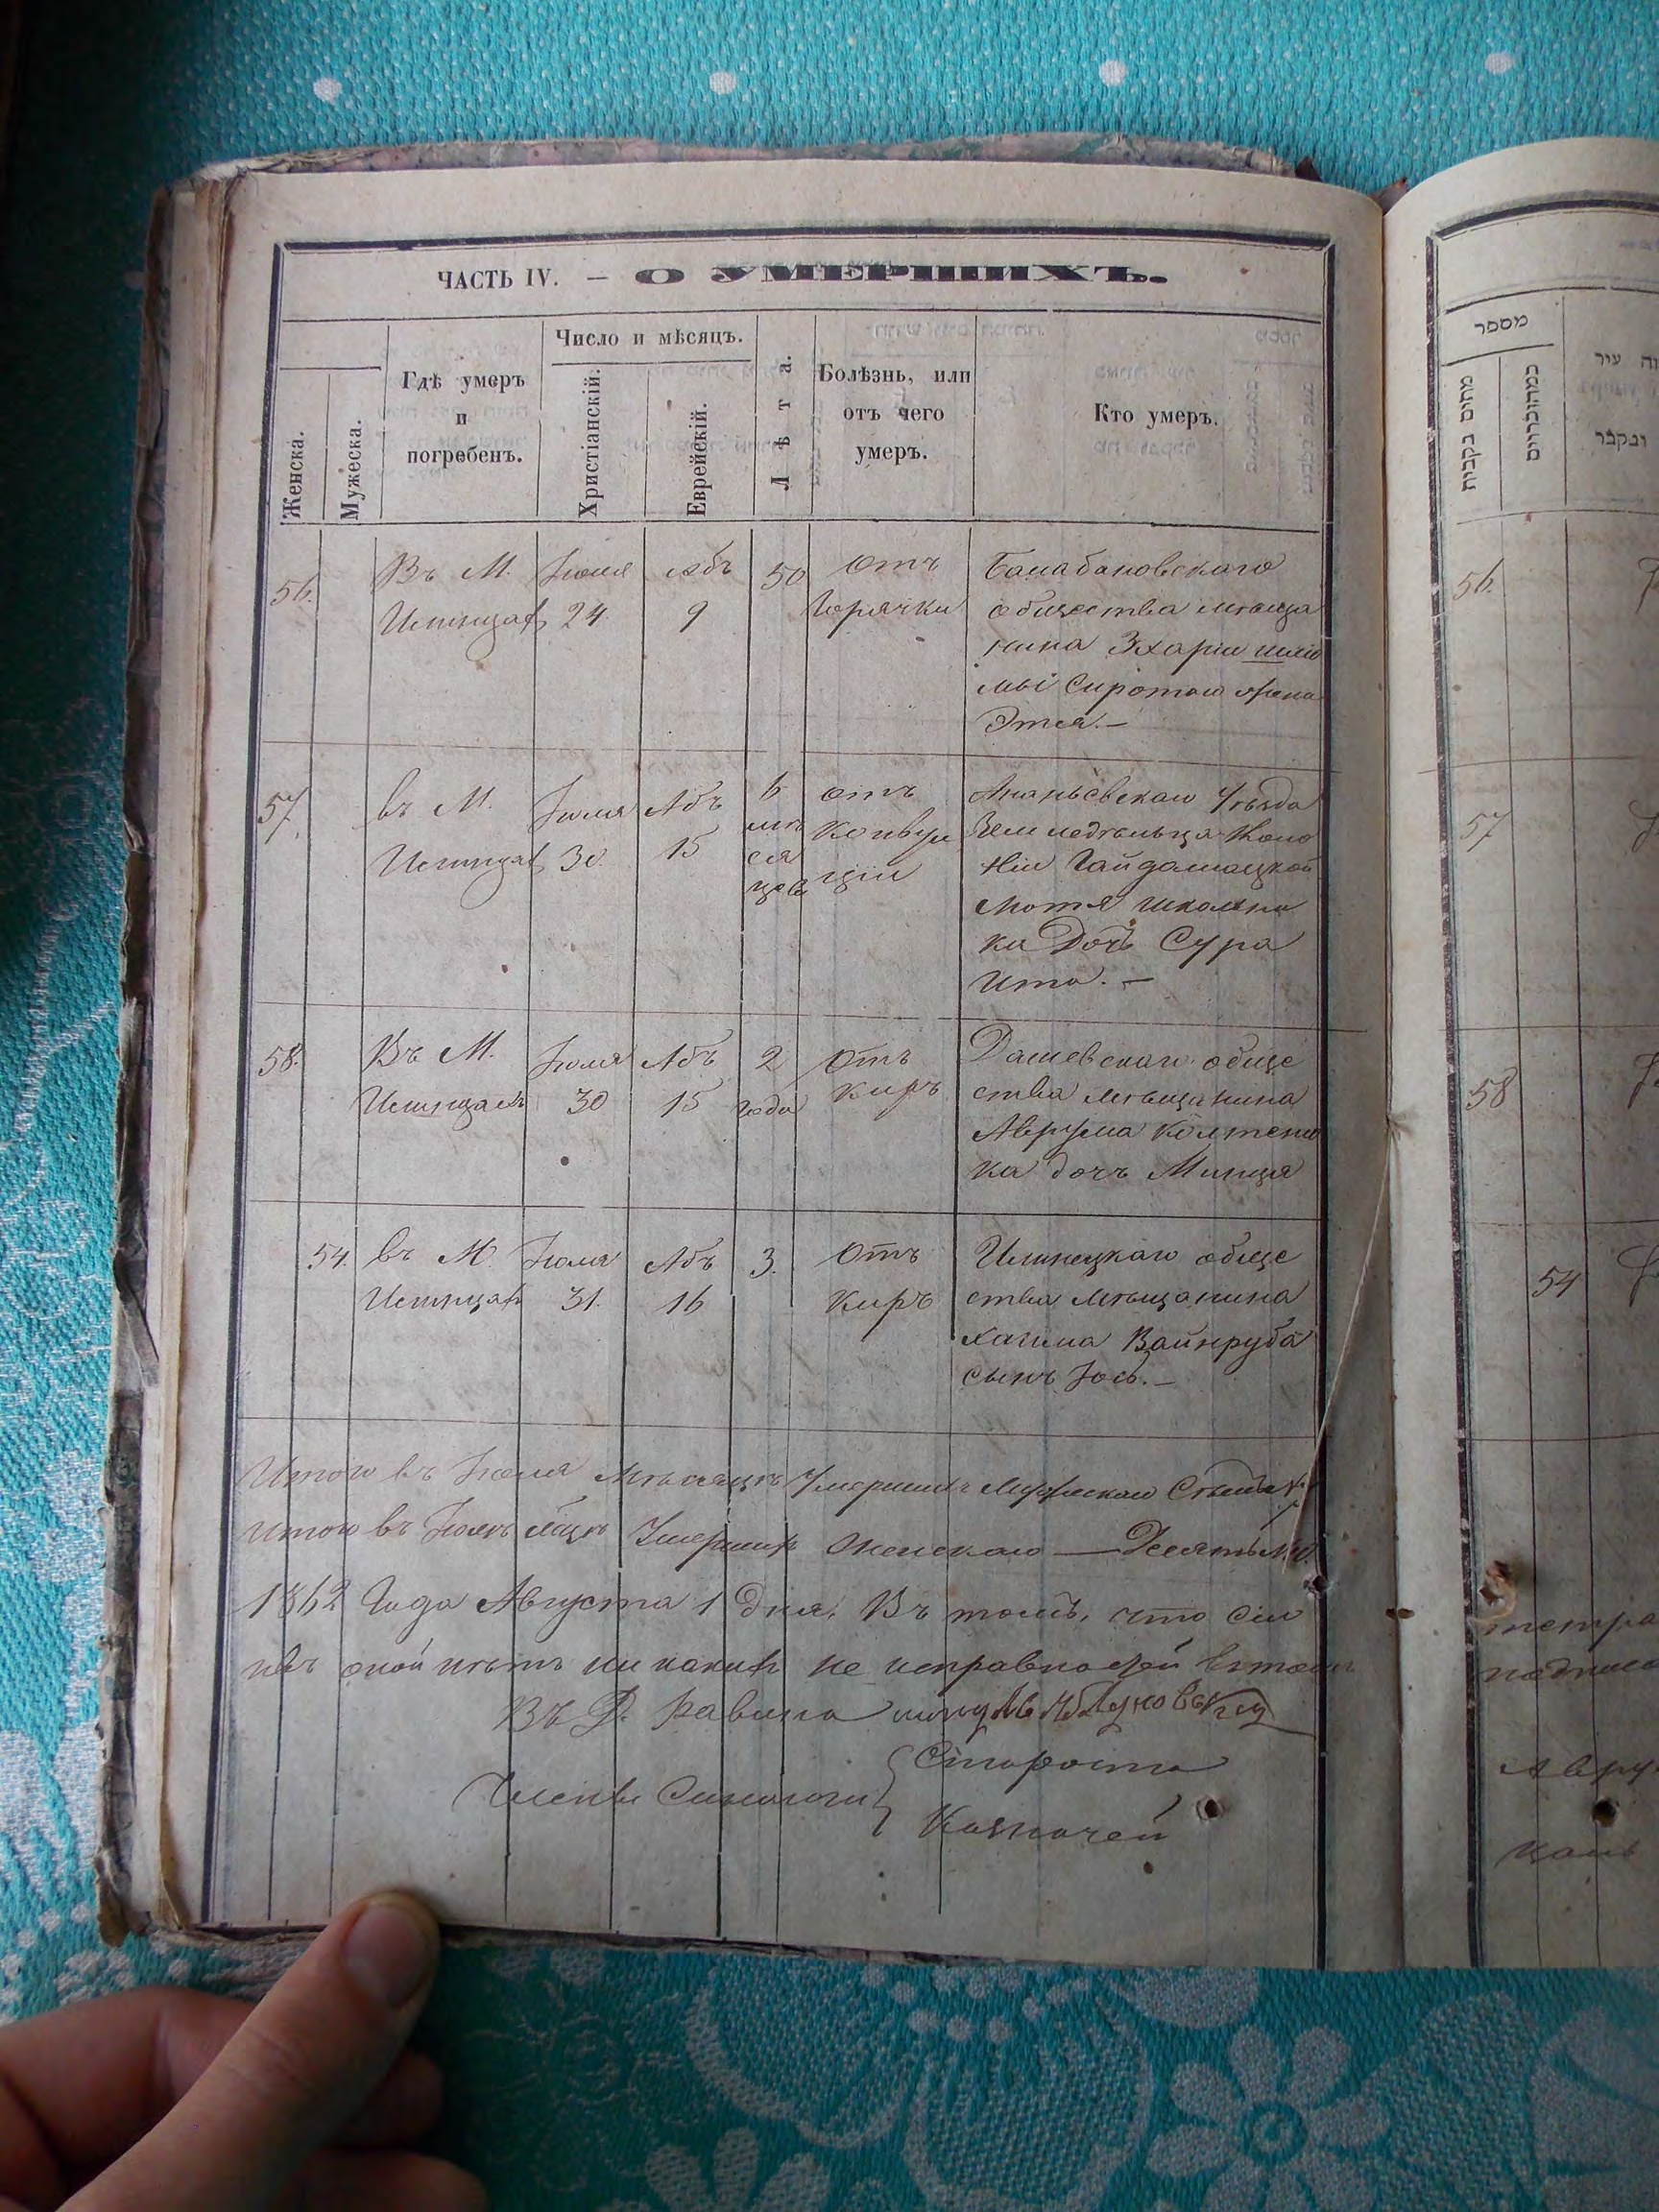 ЧАСТЬ IV. — О УМЕРШИХЪ.
Женска.
Мужеска.
Гдѣ умеръ
и
погребенъ.
Число и мѣсяцъ.
Христіанскій.
Еврейскій.
Лѣта.
Болѣзнь, или
отъ чего
умеръ.
Кто умеръ.
56.
Въ М.
Илинцах
Іюля
24
Абъ
9
50
отъ
Горячки
Балабановскаго
общества мѣща
нина Зхаріи Шліо
мы Сиротаго жена
Этля. —
57.
въ М.
Илинцах
Іюля
30.
Абъ
15
6
мѣ
ся
цовъ
отъ
Конвул
ціи
Ананьевскаго Уѣзда
Земледѣльца Коло
ніи Гайдамацкой
Мотя Школьни
ка Дочь Сура
Ита. —
58.
Въ М.
Илинцахъ
Іюля
30
Абъ
15
2
года
Отъ
Киръ
Дашевскаго обще
ства мѣщанина
Аврума
ка дочь Минця
54.
въ М.
Илинцах
Іюля
31.
Абъ
16
3.
Отъ
Киръ
Илинецкаго обще
ства мѣщанина
Хаима Вайнруба
сынъ Іось. —
Итого въ Іюля Мѣсяцѣ Умершихъ Мужескаго
Итого въ Іюлѣ Умерших Женскаго — Десять
1862 Года Августа 1 Дня, Въ томъ, что сіи
оной нѣтъ ни каких не исправностей втомъ
Въ Д. Равина
Члены Синагоги
Староста
Казначей
מספר
מהם נקבות
מהזכרים
עיר
ונקבר
56.
57
58
54
тетра
Авру